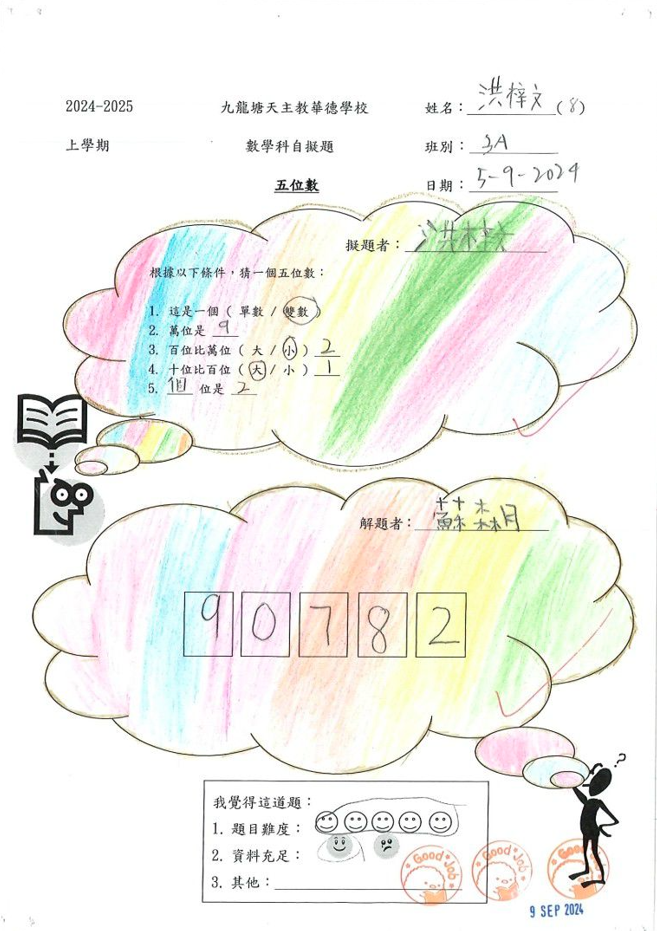 2024-2025 九龍塘天主教華德學校 姓名：洪梓文(8)
上學期 數學科自擬題 班別：3A
五位數 日期：5-9-2024
擬題者：洪梓文
根據以下條件，猜一個五位數：
1. 這是一個（單數／雙數）
2. 萬位是 9
3. 百位比萬位（大／小）2
4. 十位比百位（大／小）1
5. 個 位是 2
解題者：蘇
9 0 7 8 2
我覺得這道題：
1. 題目難度：
2. 資料充足：
3. 其他：
Good Job
Good Job
Good Job
9 SEP 2024
?